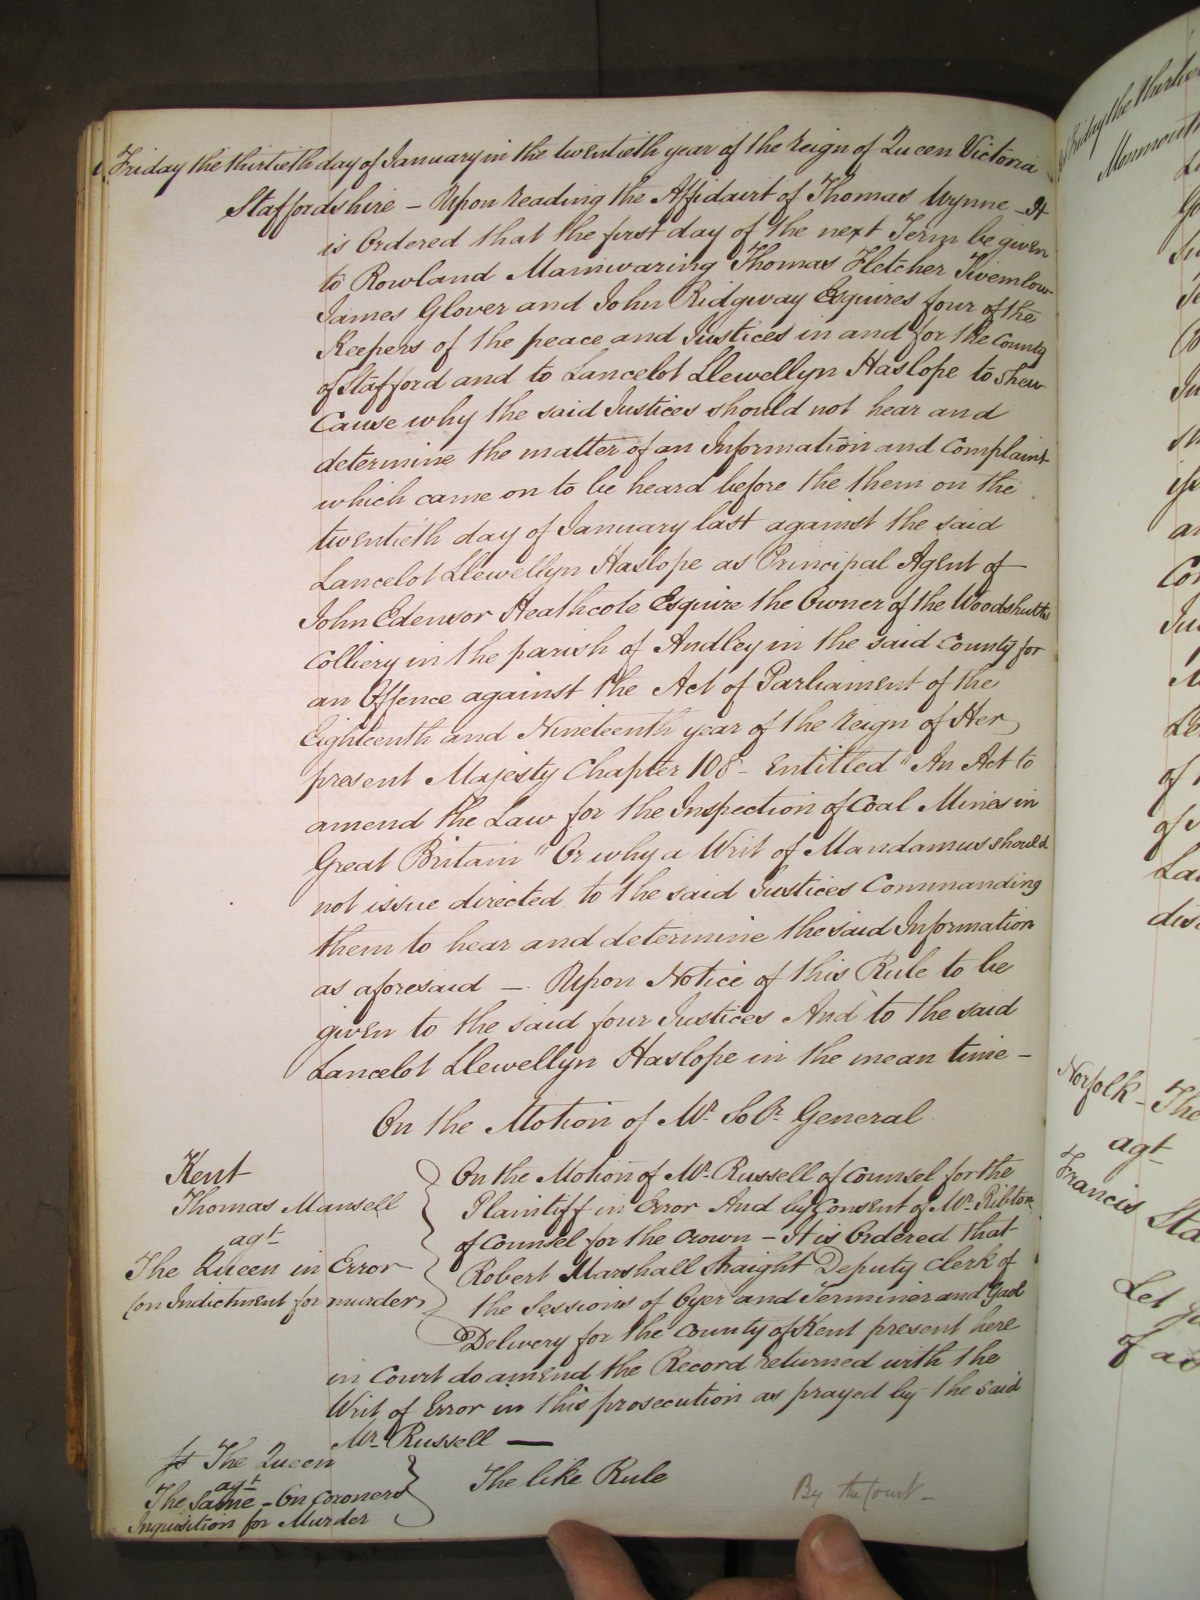 Friday the thirtieth day of January in the twentieth year of the Reign of Queen Victoria
Staffordshire – Upon reading the Affidavit of Thomas Wynne – It
is Ordered that the first day of the next Term be given
to Rowland Mainwaring Thomas Fletcher Twemlow
James Glover and John Ridgway Esquires four of the
Keepers of the peace and Justices in and for the County
of Stafford and to Lancelot Llewellyn Haslope to shew
Cause why the said Justices should not hear and
determine the matter of an Information and Complaint
which came on to be heard before the them on the
twentieth day of January last against the said
Lancelot Llewellyn Haslope as Principal Agent of
John Edensor Heathcote Esquire the Owner of the Woodshutts
Colliery in the parish of Audley in the said County for
an Offence against the Act of Parliament of the
Eighteenth and Nineteenth year of the reign of Her
present Majesty Chapter 108 – Entitled "An Act to
amend the Law for the Inspection of Coal Mines in
Great Britain" Or why a Writ of Mandamus should
not issue directed to the said Justices Commanding
them to hear and determine the said Information
as aforesaid – Upon Notice of this Rule to be
given to the said four Justices And to the said
Lancelot Llewellyn Haslope in the mean time –
On the Motion of Mr. Solr. General
Kent
Thomas Mansell
agt
The Queen in Error
(on Indictment for murder)
On the Motion of Mr. Russell of Counsel for the
Plaintiff in Error And by Consent of Mr. Ribton
of Counsel for the Crown – It is Ordered that
Robert Marshall Straight Deputy Clerk of
the Sessions of Oyer and Terminer and Gaol
Delivery for the County of Kent present here
in Court do amend the Record returned with the
Writ of Error in this prosecution as prayed by the said
Mr. Russell —
The Queen
agt
The Same – On Coroners
Inquisition for Murder
The like Rule
By the Court –
Norfolk – The
agt
Francis Sta